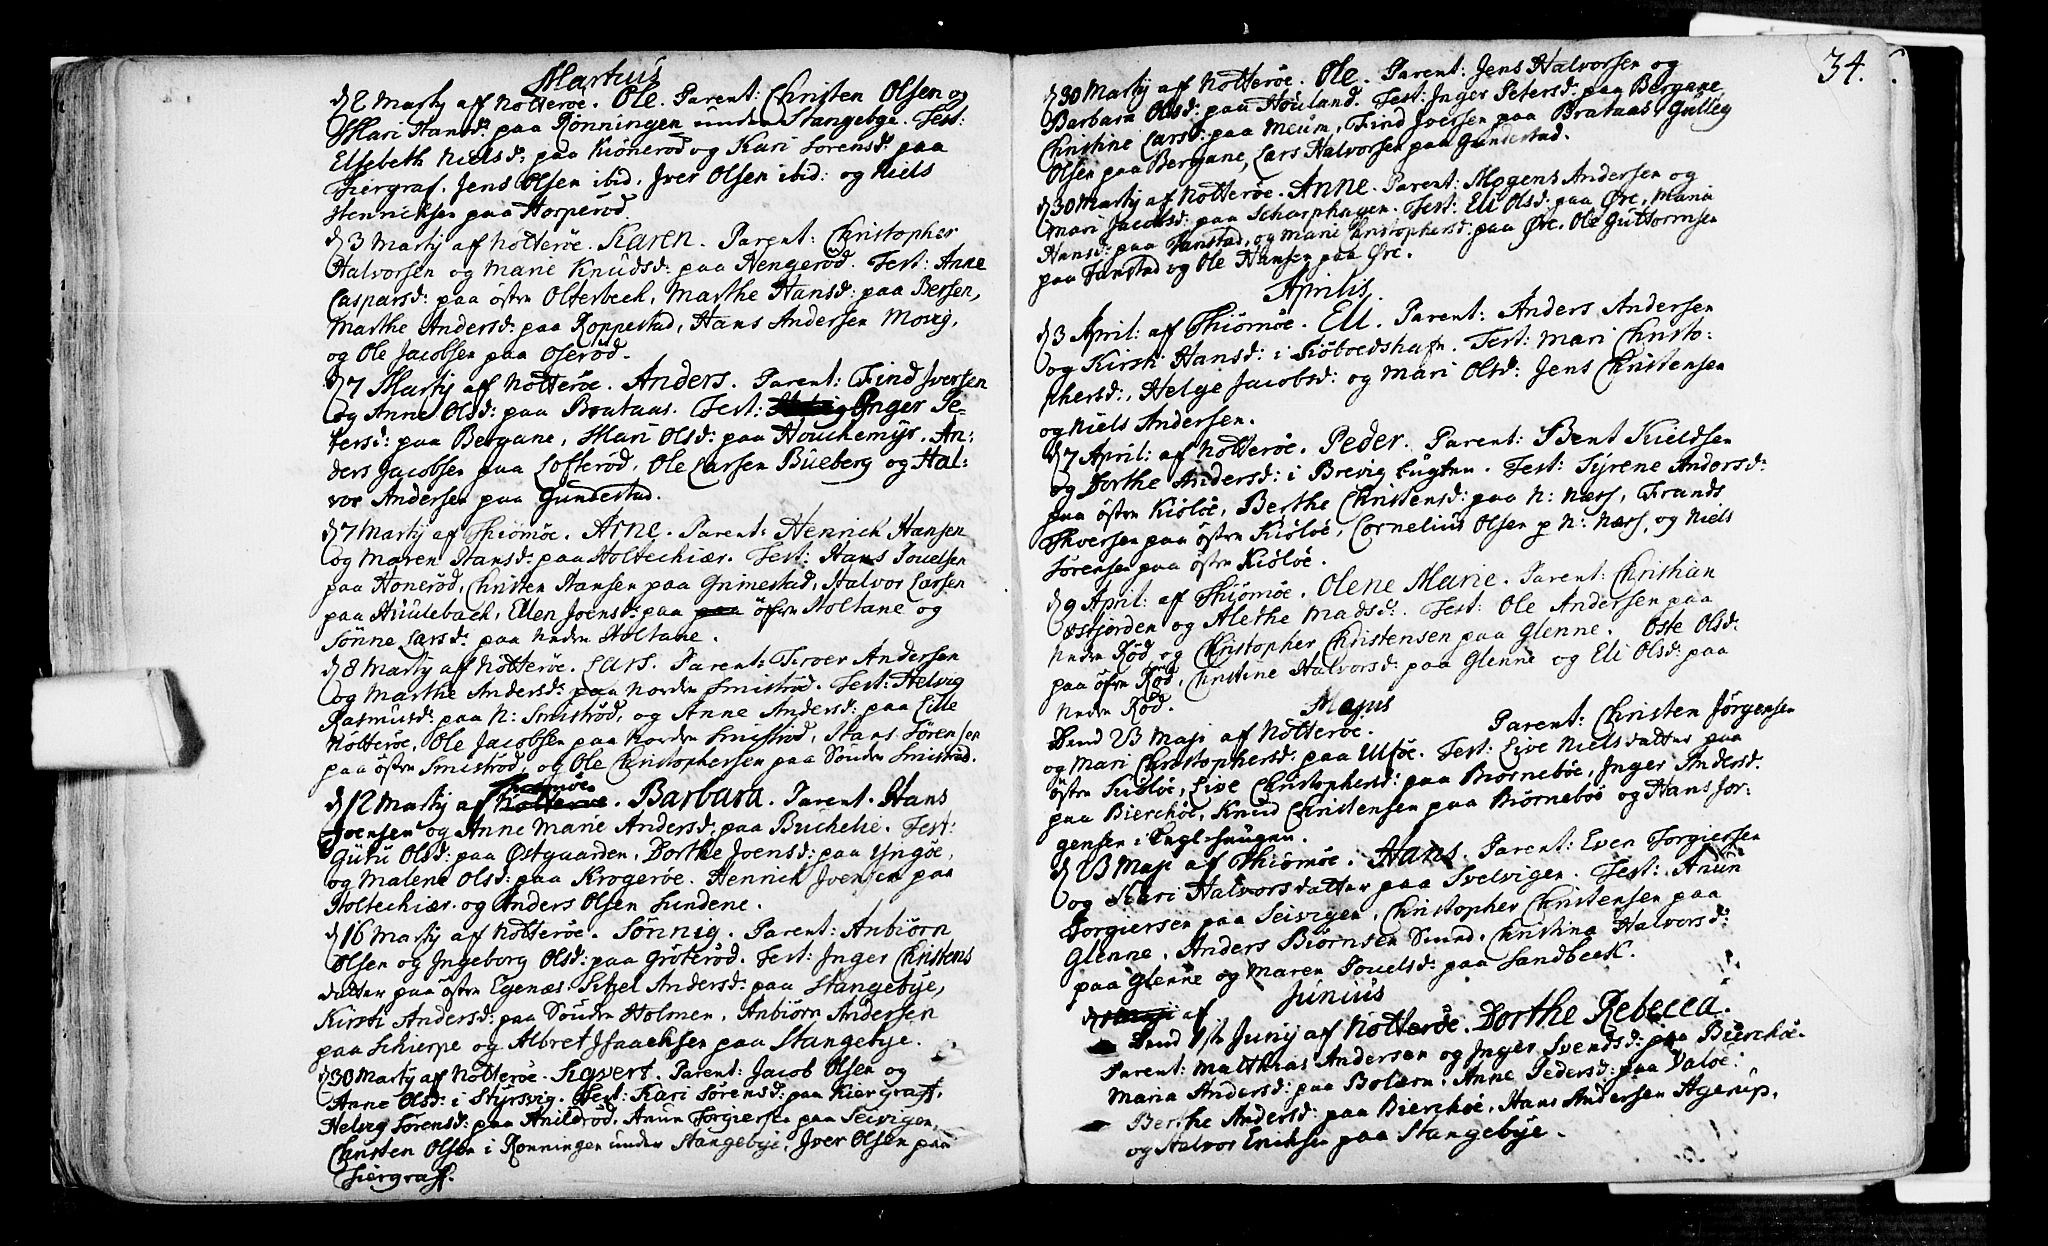 Martius
d 2 Martij aff Nötteröe. Ole. Parent: Christen Olsen og
Mari Hansd: paa Rönningen under Stangebye. Test:
Elsebeth Nielsd: paa Kiönerød og Kari Sorensd: paa
Kiergraf. Jens Olsen ibid, Jver Olsen ibid: og Niels
Henrichsen paa Torperød.
d 3 Martij af Nötteröe. Karen. Parent: Christopher
Halvorsen og Marie Knudsd: paa Hengeröd. Test: Anne
Caspersd: paa östre Olterbech, Marthe Hansd: paa Bersen,
Marthe Andersd: paa Roppestad, Hans Andersen Movig,
og Ole Jacobsen paa Oseröd.
d 7 Martij af Nötteröe. Anders. Parent: Find Jversen
og Anne Olsd: paa Brataas. Test: Inger Pe-
tersd: paa Bergane, Mari Olsd: paa Houchemyr. An:
ders Jacobsen paa Lofteröd, Ole Larsen Bueberg og Hal:
vor Andersen paa Gundestad.
d 7 Martij af Thiömöe. Arne. Parent: Henrich Hansen
og Maren Hansd: paa Holtechiær. Test: Hans Pouelsen
paa Honeröd, Christen Hansen paa Grimestad, Halvor Larsen
paa Hiulebach, Ellen Joensd: paa paa öfre Holtane og
Sönne Larsd: paa nedre Holtane.
d 8 Martij af Nötteröe. Lars. Parent: Troer Andersen
og Marthe Andersd: paa Nordre Smiströd. Test: Helvig
Rasmusd: paa N: Smiströd, og Anne Andersd: paa Lille
Nötteröe, Ole Jacobsen paa Nordre Smiströd, Hans Sörensen
paa östre Smiströd, og Ole Christophersen paa Söndre Smiströd.
d 12 Martij af Nötteröe Thiömöe. Barbara. Parent. Hans
Joensen og Anne Marie Andersd: paa Buchelie. Test:
Guru Olsd: paa Østgaarden, Dorthe Joensd: paa Yngöe,
og Malene Olsd: paa Krogeröe. Henrich Joensen paa
Holtechiær. og Anders Olsen Lindene.
d 16 Martij af Nötteröe. Sönnig. Parent: Anbiörn
Olsen og Jngeborg Olsd: paa Gröteröd. Test: Jnger Christens
datter paa östre Egenæs. Sitzel Andersd: paa Stangebye,
Kirsti Andersd: paa Söndre Holmen, Anbiörn Andersen
paa Schierpe og Albret Jsaachsen paa Stangebye.
d 30 Martij af Nötteröe. Sigvert. Parent: Jacob Olsen og
Anne Olsd: i Styrsvig. Test: Kari Sörensd: paa Kiergraff,
Helvig Sörensd: paa Anilsröd. Anun Torgiersen paa Seivigen,
Christen Olsen i Rönningen under Stangebye. Jver Olsen paa
Kiergraf.
34.
d 30 Martij af Nötteröe. Ole. Parent: Jens Halvorsen og
Barbara Olsd: paa Houland. Test: Jnger Petersd: paa Bergane,
Christine Larsd: paa Meum, Find Jversen paa Brataas, Gulleg
Olsen paa Bergane, Lars Halvorsen paa Gundestad.
d 30 Martij af Nötteröe. Anne. Parent: Mogens Andersen og
Mari Jacobsd: paa Scharphagen. Test: Eli Olsd: paa Øre, Maria
Hansd: paa Tanstad, og Marie Christophersd: paa Øre. Ole Guttormsen
paa Tanstad og Ole Hansen paa Øre.
Aprilis.
d 3 April: af Thiömöe. Eli. Parent: Anders Andersen
og Kirsti Hansd: i Kiöboedshafn. Test: Mari Christo:
phersd:, Helge Jacobsd: og Mari Olsd: Jens Christensen
og Niels Andersen.
d 7 April: af Nötteröe. Peder. Parent: Bent Kieldsen
og Dorthe Andersd: i Brevig Lugten. Test: Syrene Andersd:
paa östre Kiölöe, Berthe Christensd: paa N: Næss, Frands
Thversen paa östre Kiölöe, Cornelius Olsen p N: Næss, og Niels
Sörensen paa östre Kiölöe.
d 9 April: af Thiömöe. Olene Marie. Parent: Christian
Østjorden og Alethe Madsd: Test: Ole Andersen paa
Nedre Röd og Christopher Christensen paa Glenne. Oste Olsd:
paa öfre Röd, Christine Halvorsd: paa Glenne og Eli Olsd: paa
Nedre Röd.
Majus
Dend 23 Maji af Nötteröe. Parent: Christen Jörgensen
og Mari Christophersd: paa Ulföe. Test: Live Nielsdatter paa
östre Kiölöe, Live Christophersd: paa Biörneböe, Jnger Andersd:
paa Bierchöe, Knud Christensen paa Biörneböe og Hans Jör-
gensen i
d 23 Maji af Thiömöe. Hans. Parent: Even Torgiersen
og Kari Halvorsdatter paa Svelvigen. Test: Anun
Torgiersen paa Seivigen, Christopher Christensen paa
Glenne, Anders Biörnsen Sund, Christina Halvorsd:
paa Glenne og Maren Pouelsd: paa Sandbeck.
Junius
d Maji af
Dend 1ste Junij af Nötteröe. Dorthe Rebecca.
Parent: Matthias Andersen og Jnger Svendsd: paa Bierchöe.
Maria Andersd: paa Bolærn. Anne Pedersd: paa Valöe.
Berthe Andersd: paa Bierchöe, Hans Andersen Agerup,
og Halvor Erichsen paa Stangebye.